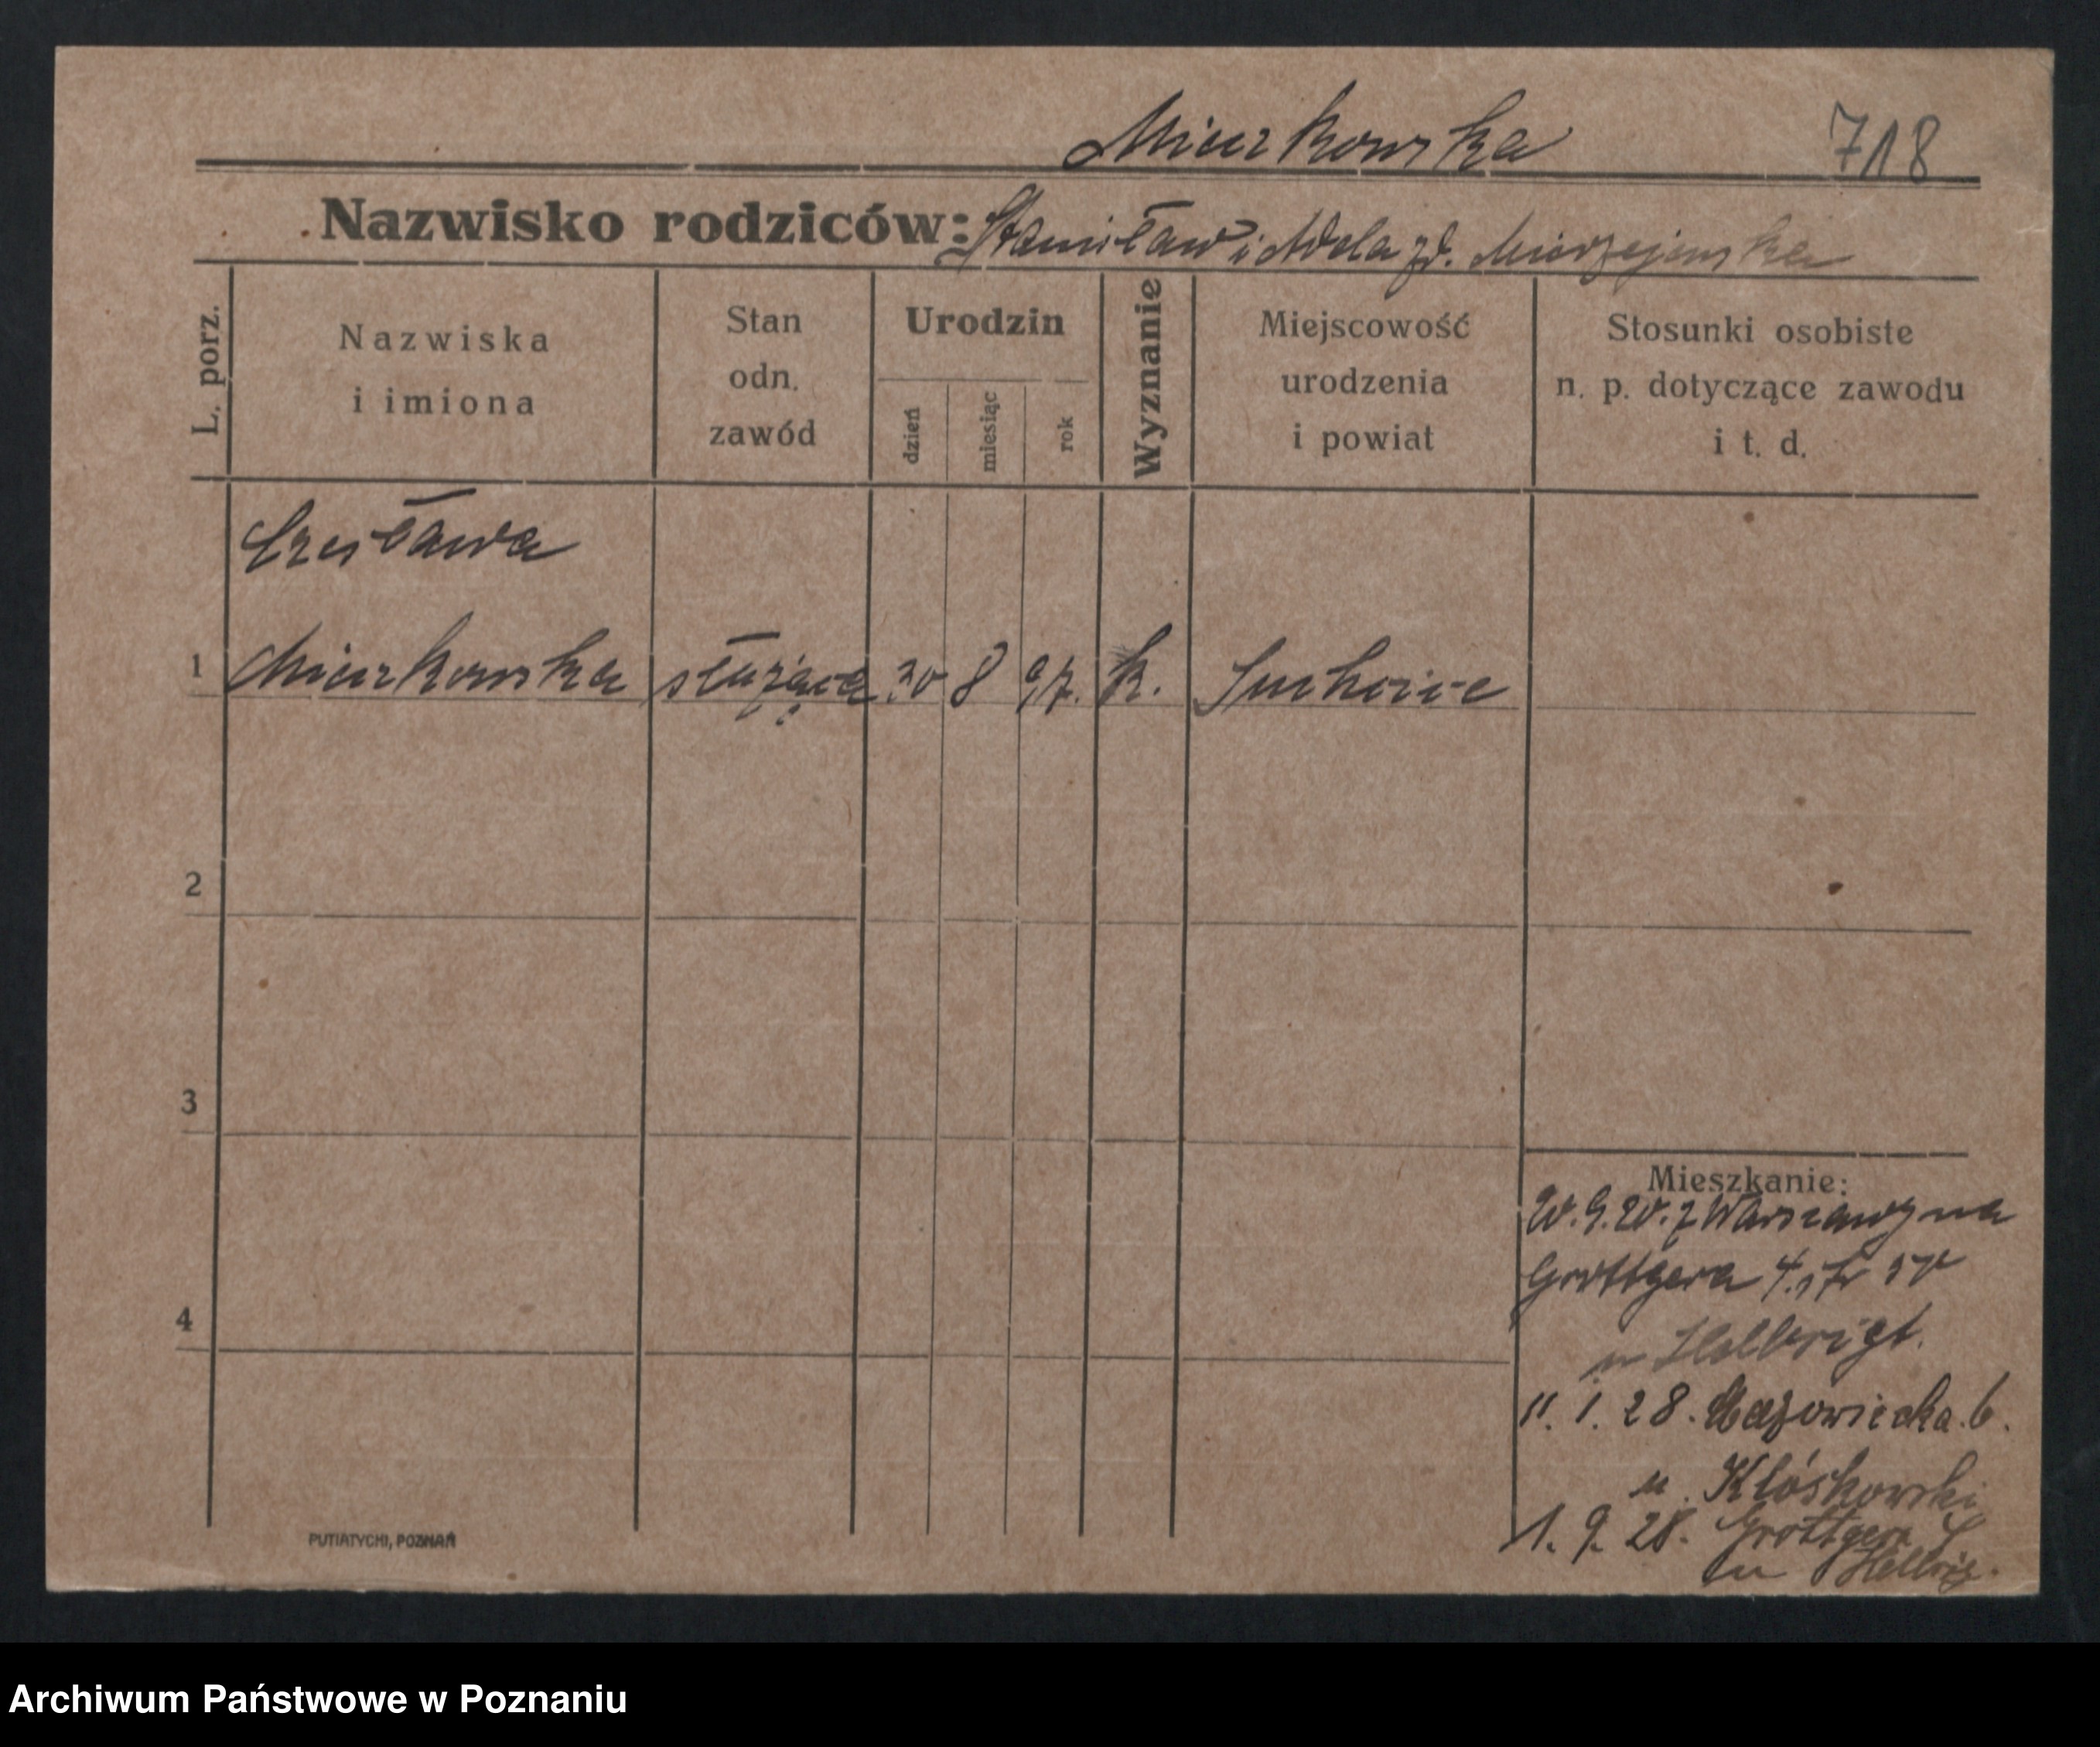 Mieczkowska 718
Nazwisko rodziców: Stanisław i Adela zd. Mierzejewska
L. porz.
Nazwiska
i imiona
Stan
odn.
zawód
Urodzin
dzień
miesiąc
rok
Wyznanie
Miejscowość
urodzenia
i powiat
Stosunki osobiste
n. p. dotyczące zawodu
i t. d.
Czesława
1 Mieczkowska służąca 30 8 97. k.
2
3
4
Mieszkanie:
z Warszawy na
Grottgera 4.
11. 1. 28. Mazowiecka 6.
u. Kłóskowski
1. 9. 28. Grottgera
u
PUTIATYCKI, POZNAŃ
Archiwum Państwowe w Poznaniu